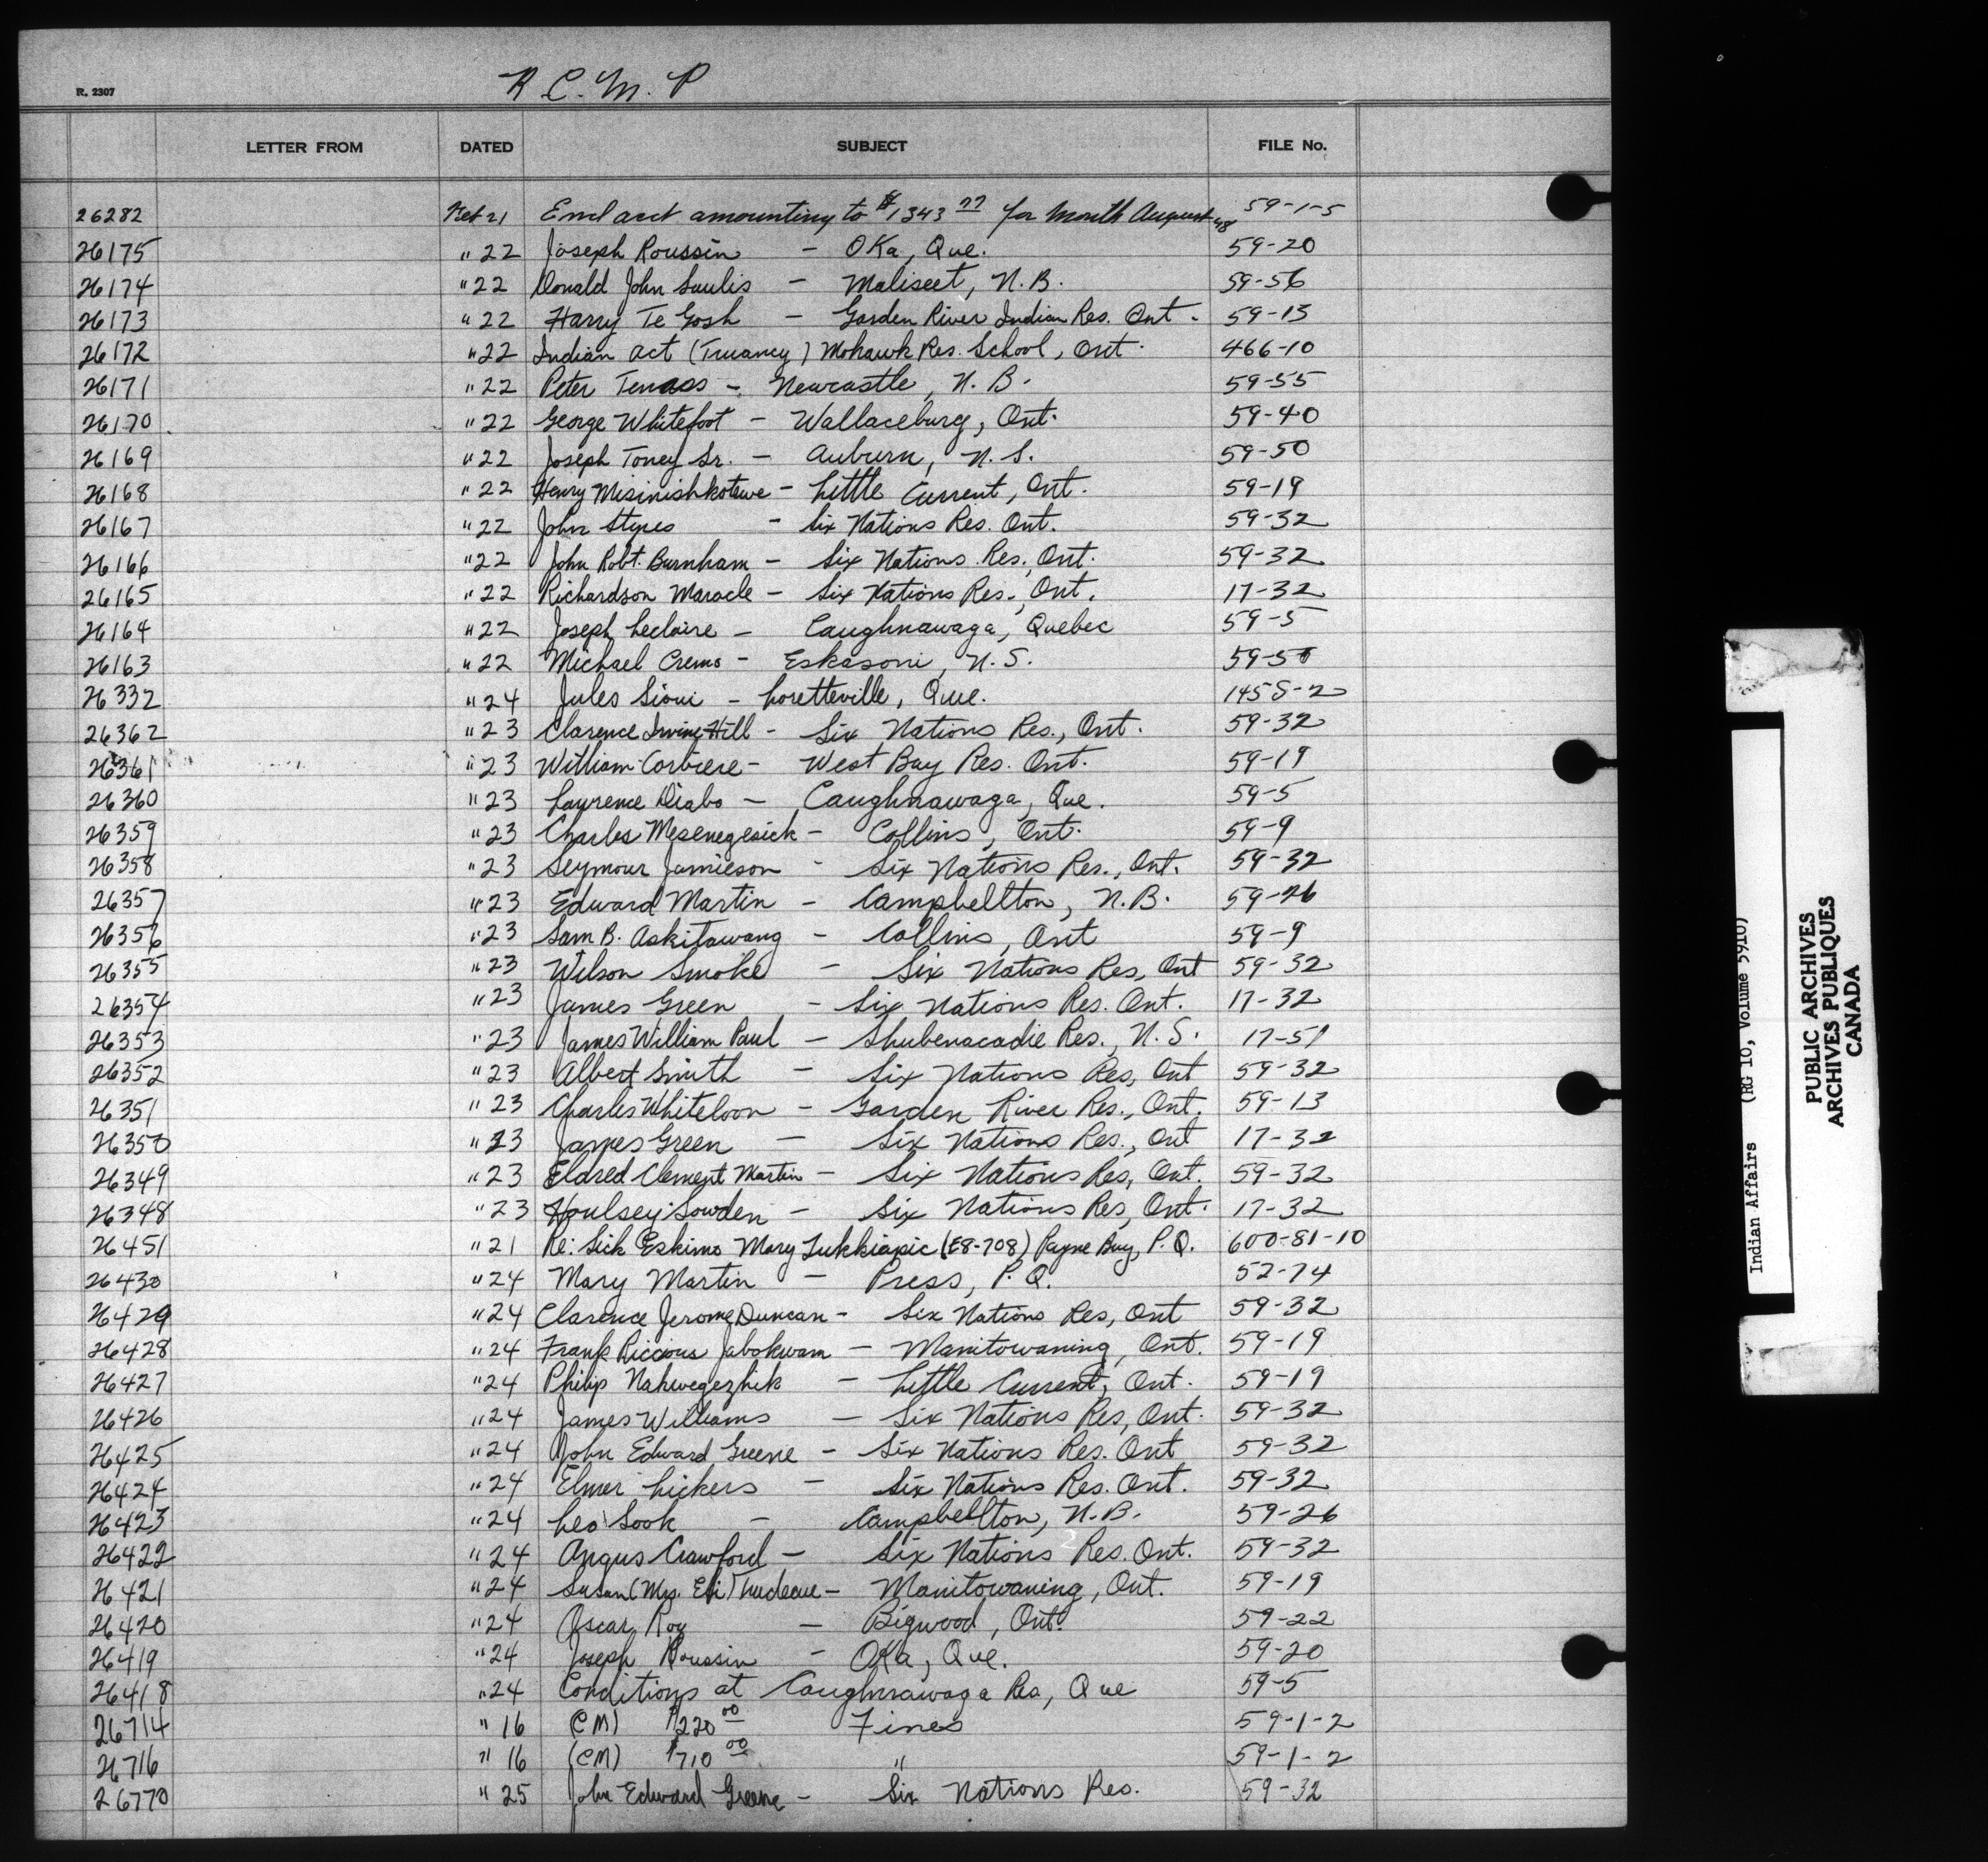 R. 2307
R. C. M. P
LETTER FROM DATED SUBJECT FILE No.
26282 Feb 21 Encl acct amounting to $1343 77 for month August 48 59-1-5
26175 " 22 Joseph Roussin - OKa, Que. 59-20
26174 " 22 Donald John Saulis - Maliseet, N.B. 59-56
26173 " 22 Harry Te Gosh - Garden River Indian Res. Ont. 59-13
26172 " 22 Indian act (Truancy) Mohawk Res. School, Ont. 466-10
26171 " 22 Peter Tenass - Newcastle, N.B. 59-55
26170 " 22 George Whitefoot - Wallaceburg, Ont. 59-40
26169 " 22 Joseph Toney Sr. - Auburn, N.S. 59-50
26168 " 22 Henry Misinishkotewe - Little Current, Ont. 59-19
26167 " 22 John Styres - Six Nations Res. Ont. 59-32
26166 " 22 John Robt. Burnham - Six Nations Res., Ont. 59-32
26165 " 22 Richardson Maracle - Six Nations Res., Ont. 17-32
26164 " 22 Joseph Leclaire - Caughnawaga, Quebec 59-5
26163 " 22 Michael Cremo - Eskasoni, N.S. 59-50
26332 " 24 Jules Sioui - Loretteville, Que. 145S-2
26362 " 23 Clarence Irvine Hill - Six Nations Res., Ont. 59-32
26361 " 23 William Corbiere - West Bay Res. Ont. 59-19
26360 " 23 Lawrence Diabo - Caughnawaga, Que. 59-5
26359 " 23 Charles Mesenegesick - Collins, Ont. 59-9
26358 " 23 Seymour Jamieson - Six Nations Res., Ont. 59-32
26357 " 23 Edward Martin - Campbellton, N.B. 59-26
26356 " 23 Sam B. Askitawang - Collins, Ont 59-9
26355 " 23 Wilson Smoke - Six Nations Res, Ont 59-32
26354 " 23 James Green - Six Nations Res. Ont. 17-32
26353 " 23 James William Paul - Shubenacadie Res., N.S. 17-51
26352 " 23 Albert Smith - Six Nations Res, Ont 59-32
26351 " 23 Charles Whiteloon - Garden River Res., Ont. 59-13
26350 " 23 James Green - Six Nations Res., Ont 17-32
26349 " 23 Eldred Clement Martin - Six Nations Res, Ont. 59-32
26348 " 23 Houlsey Sowden - Six Nations Res, Ont. 17-32
26451 " 21 Re: Sick Eskimo Mary Tukkiapic (E8-708) Payne Bay, P.Q. 600-81-10
26430 " 24 Mary Martin - Press, P.Q. 52-74
26429 " 24 Clarence Jerome Duncan - Six Nations Res, Ont 59-32
26428 " 24 Frank Jabokwam - Manitowaning, Ont. 59-19
26427 " 24 Philip Nahwegezhik - Little Current, Ont. 59-19
26426 " 24 James Williams - Six Nations Res, Ont. 59-32
26425 " 24 John Edward Greene - Six Nations Res. Ont 59-32
26424 " 24 Elmer Lickers - Six Nations Res. Ont. 59-32
26423 " 24 Leo Sook - Campbellton, N.B. 59-26
26422 " 24 Angus Crawford - Six Nations Res. Ont. 59-32
26421 " 24 Susan (Mrs. Eli) Trudeau - Manitowaning, Ont. 59-19
26420 " 24 Oscar Roy - Bigwood, Ont. 59-22
26419 " 24 Joseph Roussin - OKa, Que. 59-20
26418 " 24 Conditions at Caughnawaga Res, Que 59-5
26714 " 16 (CM) $220 00 Fines 59-1-2
26716 " 16 (CM) $710 00 " 59-1-2
26770 " 25 John Edward Greene - Six Nations Res. 59-32
Indian Affairs (RG 10, Volume 5910)
PUBLIC ARCHIVES
ARCHIVES PUBLIQUES
CANADA